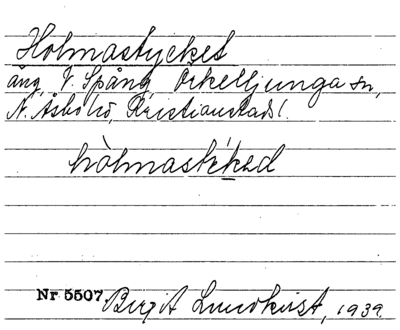 Holmastycket
äng, V. Spång, Örkelljunga sn,
N. Åsbo hd, Kristianstads l.
hòlmastékked
Nr 5507. Birgit Lundkvist, 1939.